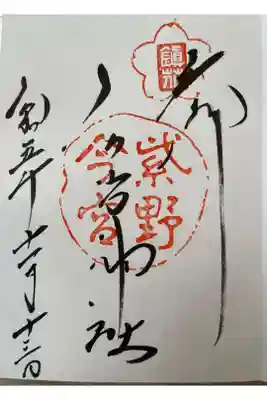 奉拝
鎭花
紫野
今宮
今宮神社
令和五年十一月十三日